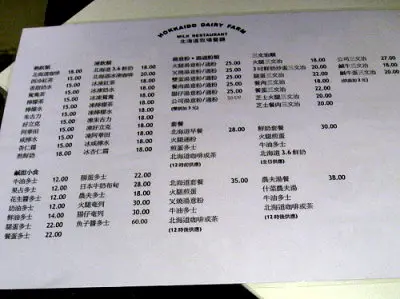 HOKKAIDO DAIRY FARM
MILK RESTAURANT
北海道牧場餐廳
熱飲類
北海道咖啡 18.00
西冷紅茶 18.00
香甜奶水 18.00
鴛鴦茶 18.00
檸檬茶 18.00
檸檬水 18.00
朱古力 18.00
好立克 18.00
阿華田 18.00
鹹檸水 18.00
杏仁霜 18.00
熱鮮奶 18.00
凍飲類
北海道3.6鮮奶 18.00
北海道冰凍咖啡 20.00
冰凍紅茶 20.00
冰凍奶水 20.00
凍鴛鴦茶 20.00
凍檸檬茶 20.00
凍檸檬水 20.00
凍朱古力 20.00
凍好立克 20.00
凍阿華田 20.00
冰咸檸水 20.00
冰杏仁霜 20.00
湯意粉・湯通粉類
火腿湯意粉/通粉 25.00
叉燒湯意粉/通粉 25.00
雙蛋湯意粉/通粉 25.00
餐蛋湯意粉/通粉 25.00
腸仔湯意粉/通粉 25.00
公司湯意粉/通粉 30.00
三文治類
火腿三文治 15.00
3吋鮮奶炒蛋三文治 20.00
腿蛋三文治 22.00
餐肉三文治 20.00
餐蛋三文治 22.00
芝士火腿三文治 20.00
芝士餐肉三文治 20.00
公司三文治 30.00
鹹牛三文治 20.00
鹹牛蛋三文治 22.00
套餐
北海道早餐 28.00
火腿通粉
煎蛋多士
北海道咖啡或茶
(12時前供應)
鮮奶套餐 30.00
火腿煎蛋
牛油多士
北海道3.6鮮奶
(全日供應)
鹹甜小食
腸蛋多士 22.00
日本牛奶布甸 28.00
農夫多士 18.00
火腿奄列 30.00
腸仔奄列 30.00
魚子醬多士 60.00
奶醬多士 12.00
果占多士 12.00
花生醬多士 12.00
奶油多士 12.00
鮮油多士 14.00
腿蛋多士 22.00
餐蛋多士 22.00
北海道套餐 35.00
火腿煎蛋
叉燒湯意粉
牛油多士
北海道咖啡或茶
(12時後供應)
農夫湯餐 38.00
什菜農夫湯
火腿煎蛋
牛油多士
北海道咖啡或茶
(12時後供應)